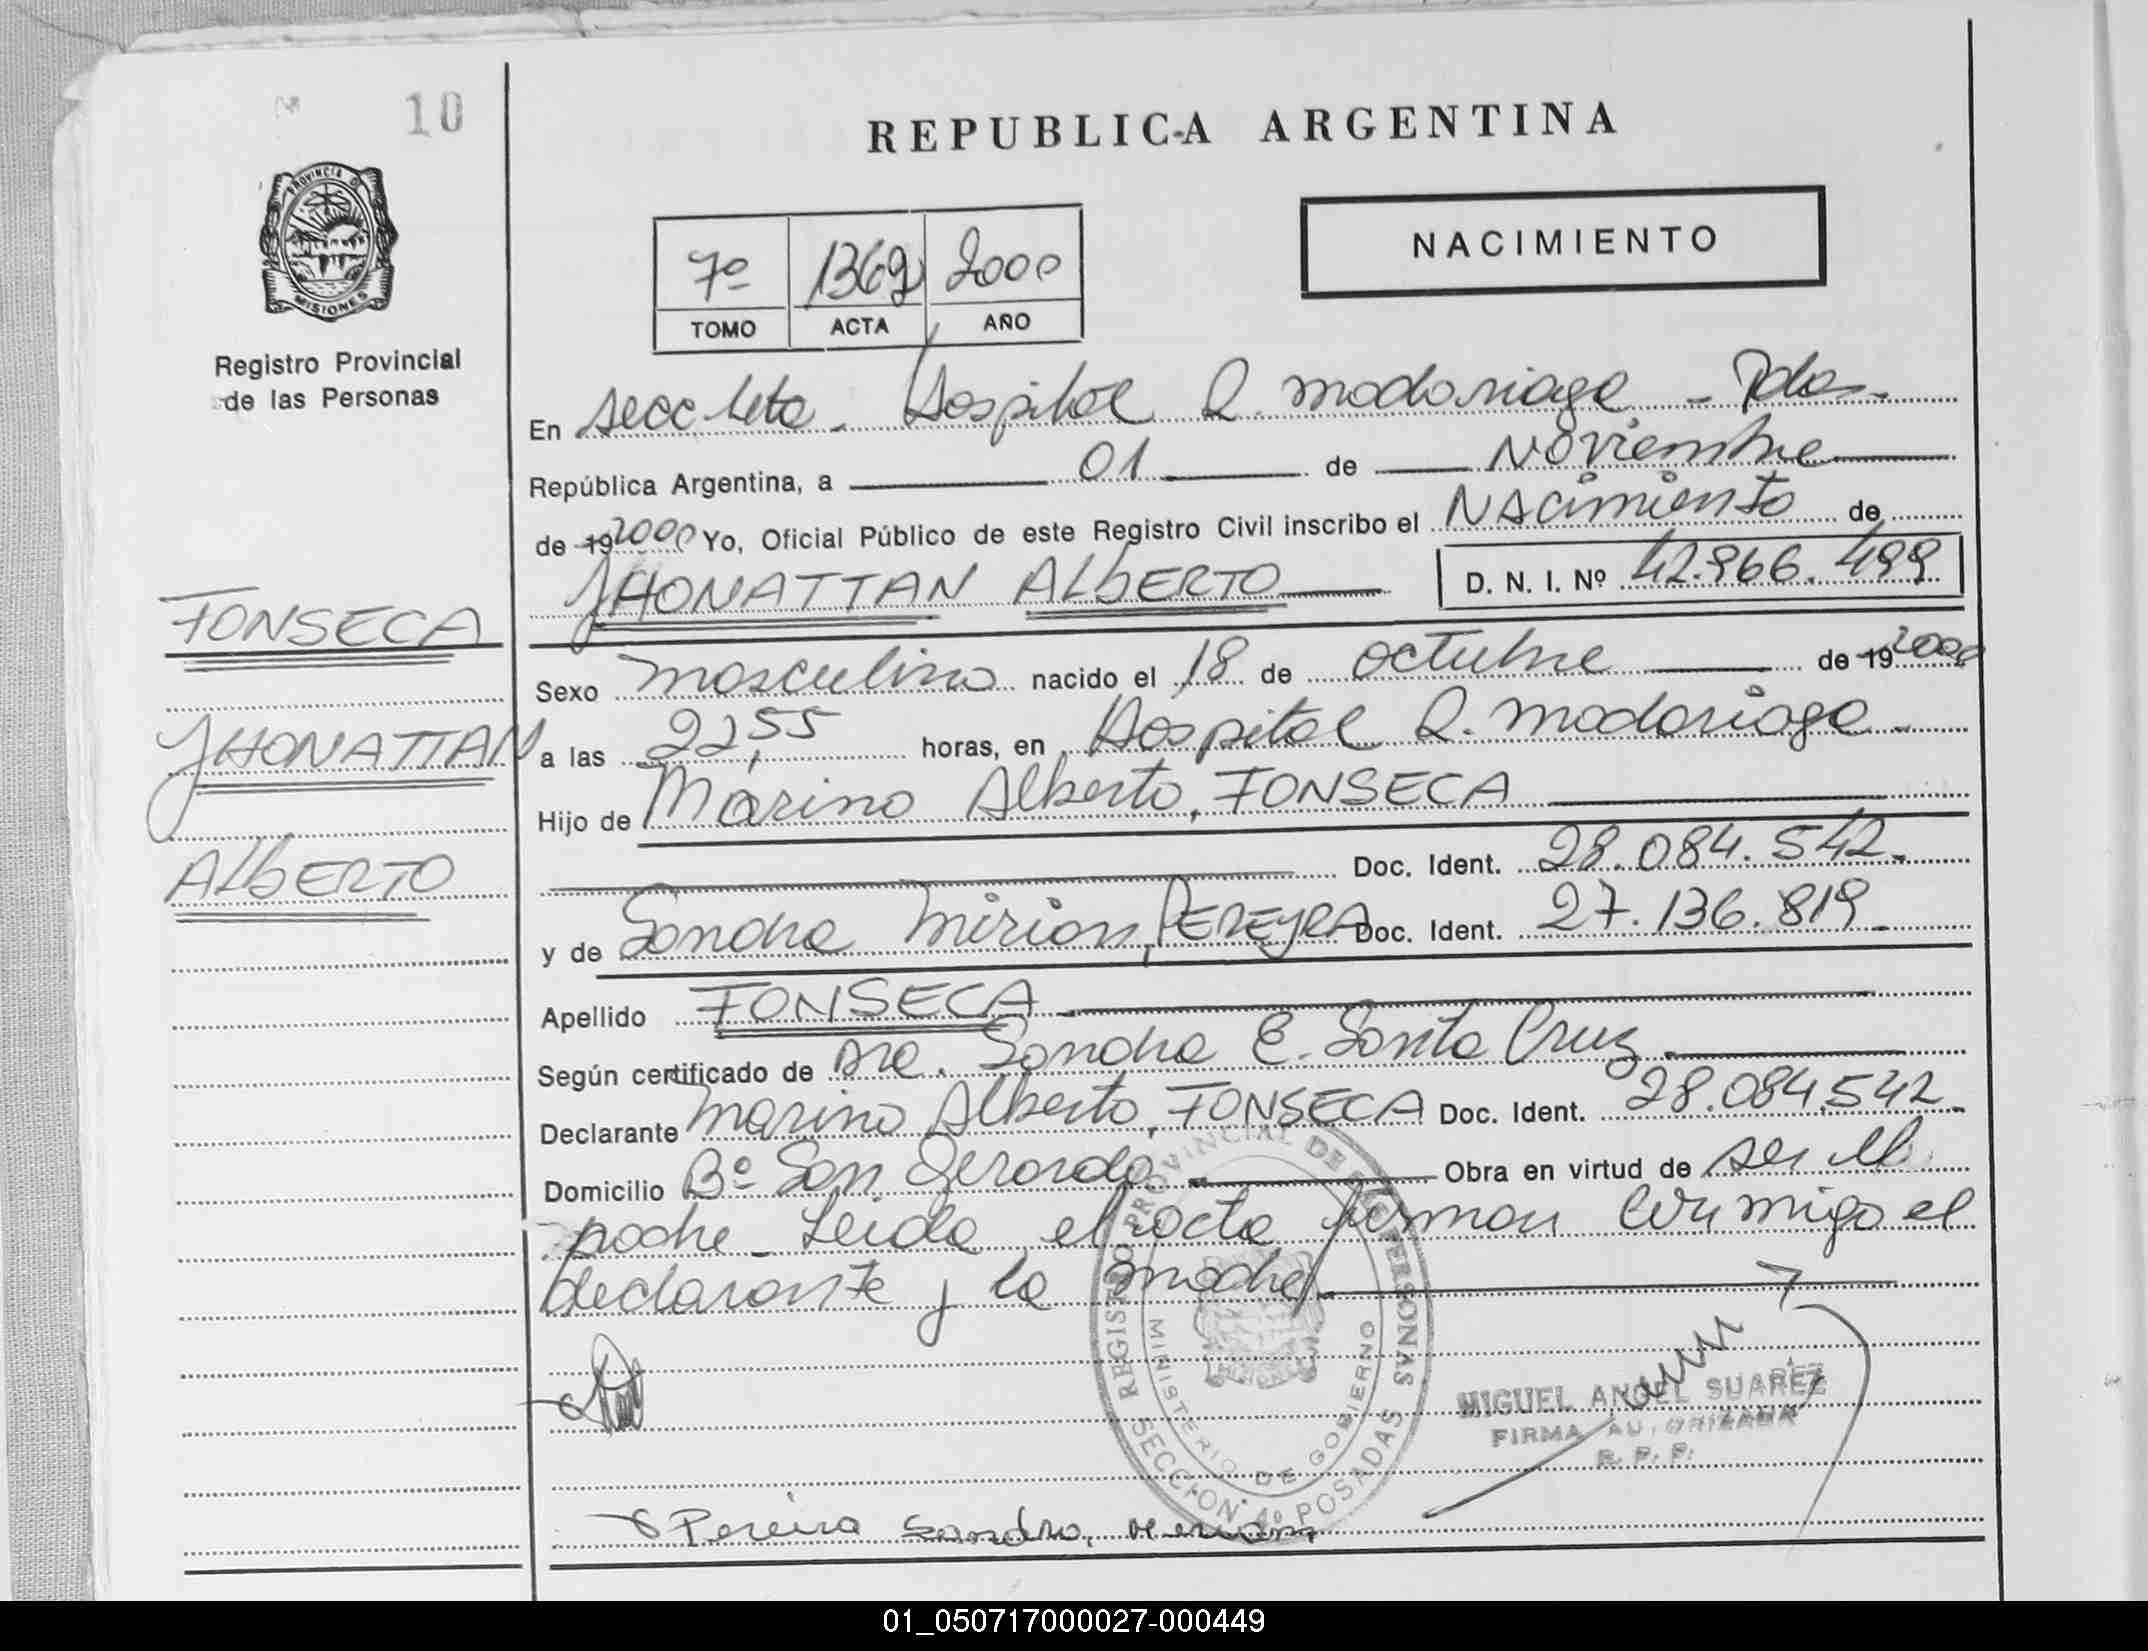 10
REPUBLICA ARGENTINA
PROVINCIA DE
MISIONES
NACIMIENTO
7º 1369 2000
TOMO ACTA AÑO
Registro Provincial
de las Personas
En Secc 4ta. Hospital R. Madariaga - Pdas-
República Argentina, a 01 de Noviembre
de 19 2000 Yo, Oficial Público de este Registro Civil inscribo el NAcimiento de
JHONATTAN ALBERTO D. N. I. Nº 42.966.499
FONSECA
Sexo masculino nacido el 18 de octubre de 19 2000
JHONATTAN
a las 22,55 horas, en Hospital R. Madariaga-
Hijo de Marino Alberto, FONSECA
ALBERTO
Doc. Ident. 28.084.542.
y de Sandra Mirian, PEREYRA Doc. Ident. 27.136.819.
Apellido FONSECA
Según certificado de Dra. Sandra E. Santa Cruz
Declarante Marino Alberto, FONSECA Doc. Ident. 28.084.542.
Domicilio Bº San Gerardo. Obra en virtud de ser el
padre - Leida el acta firman conmigo el
declarante y la madre.
REGISTRO PROVINCIAL DE LAS PERSONAS
MINISTERIO DE GOBIERNO
SECCION 4º POSADAS
MIGUEL ANGEL SUAREZ
FIRMA AUTORIZADA
R. P. P.
Pereira Sandra,
01_050717000027-000449